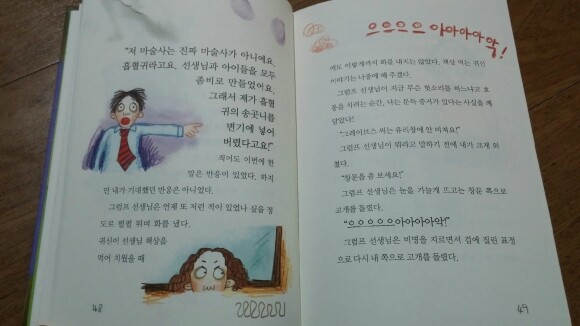 "저 마술사는 진짜 마술사가 아니에요.
흡혈귀라고요. 선생님과 아이들을 모두
좀비로 만들었어요.
그래서 제가 흡혈
귀의 송곳니를
변기에 넣어
버렸다고요!"
적어도 이번에 한
말은 반응이 있었다. 하지
만 내가 기대했던 반응은 아니었다.
그럼프 선생님은 언제 또 저런 적이 있었나 싶을 정
도로 펄펄 뛰며 화를 냈다.
귀신이 선생님 책상을
먹어 치웠을 때
48
으으으으 아아아아악!
에도 이렇게까지 화를 내지는 않았다. 책상 먹는 귀신
이야기는 나중에 해 주겠다.
그럼프 선생님이 지금 무슨 헛소리를 하느냐고 호
통을 치려는 순간, 나는 문득 증거가 있다는 사실을 깨
달았다!
"그레이브스 씨는 유리창에 안 비쳐요!"
그럼프 선생님이 뭐라고 말하기 전에 내가 크게 외
쳤다.
"창문을 좀 보세요!"
그럼프 선생님은 눈을 가늘게 뜨고는 창문 쪽으로
고개를 돌렸다.
"으으으으으아아아아악!"
그럼프 선생님은 비명을 지르면서 겁에 질린 표정
으로 다시 내 쪽으로 고개를 돌렸다.
49